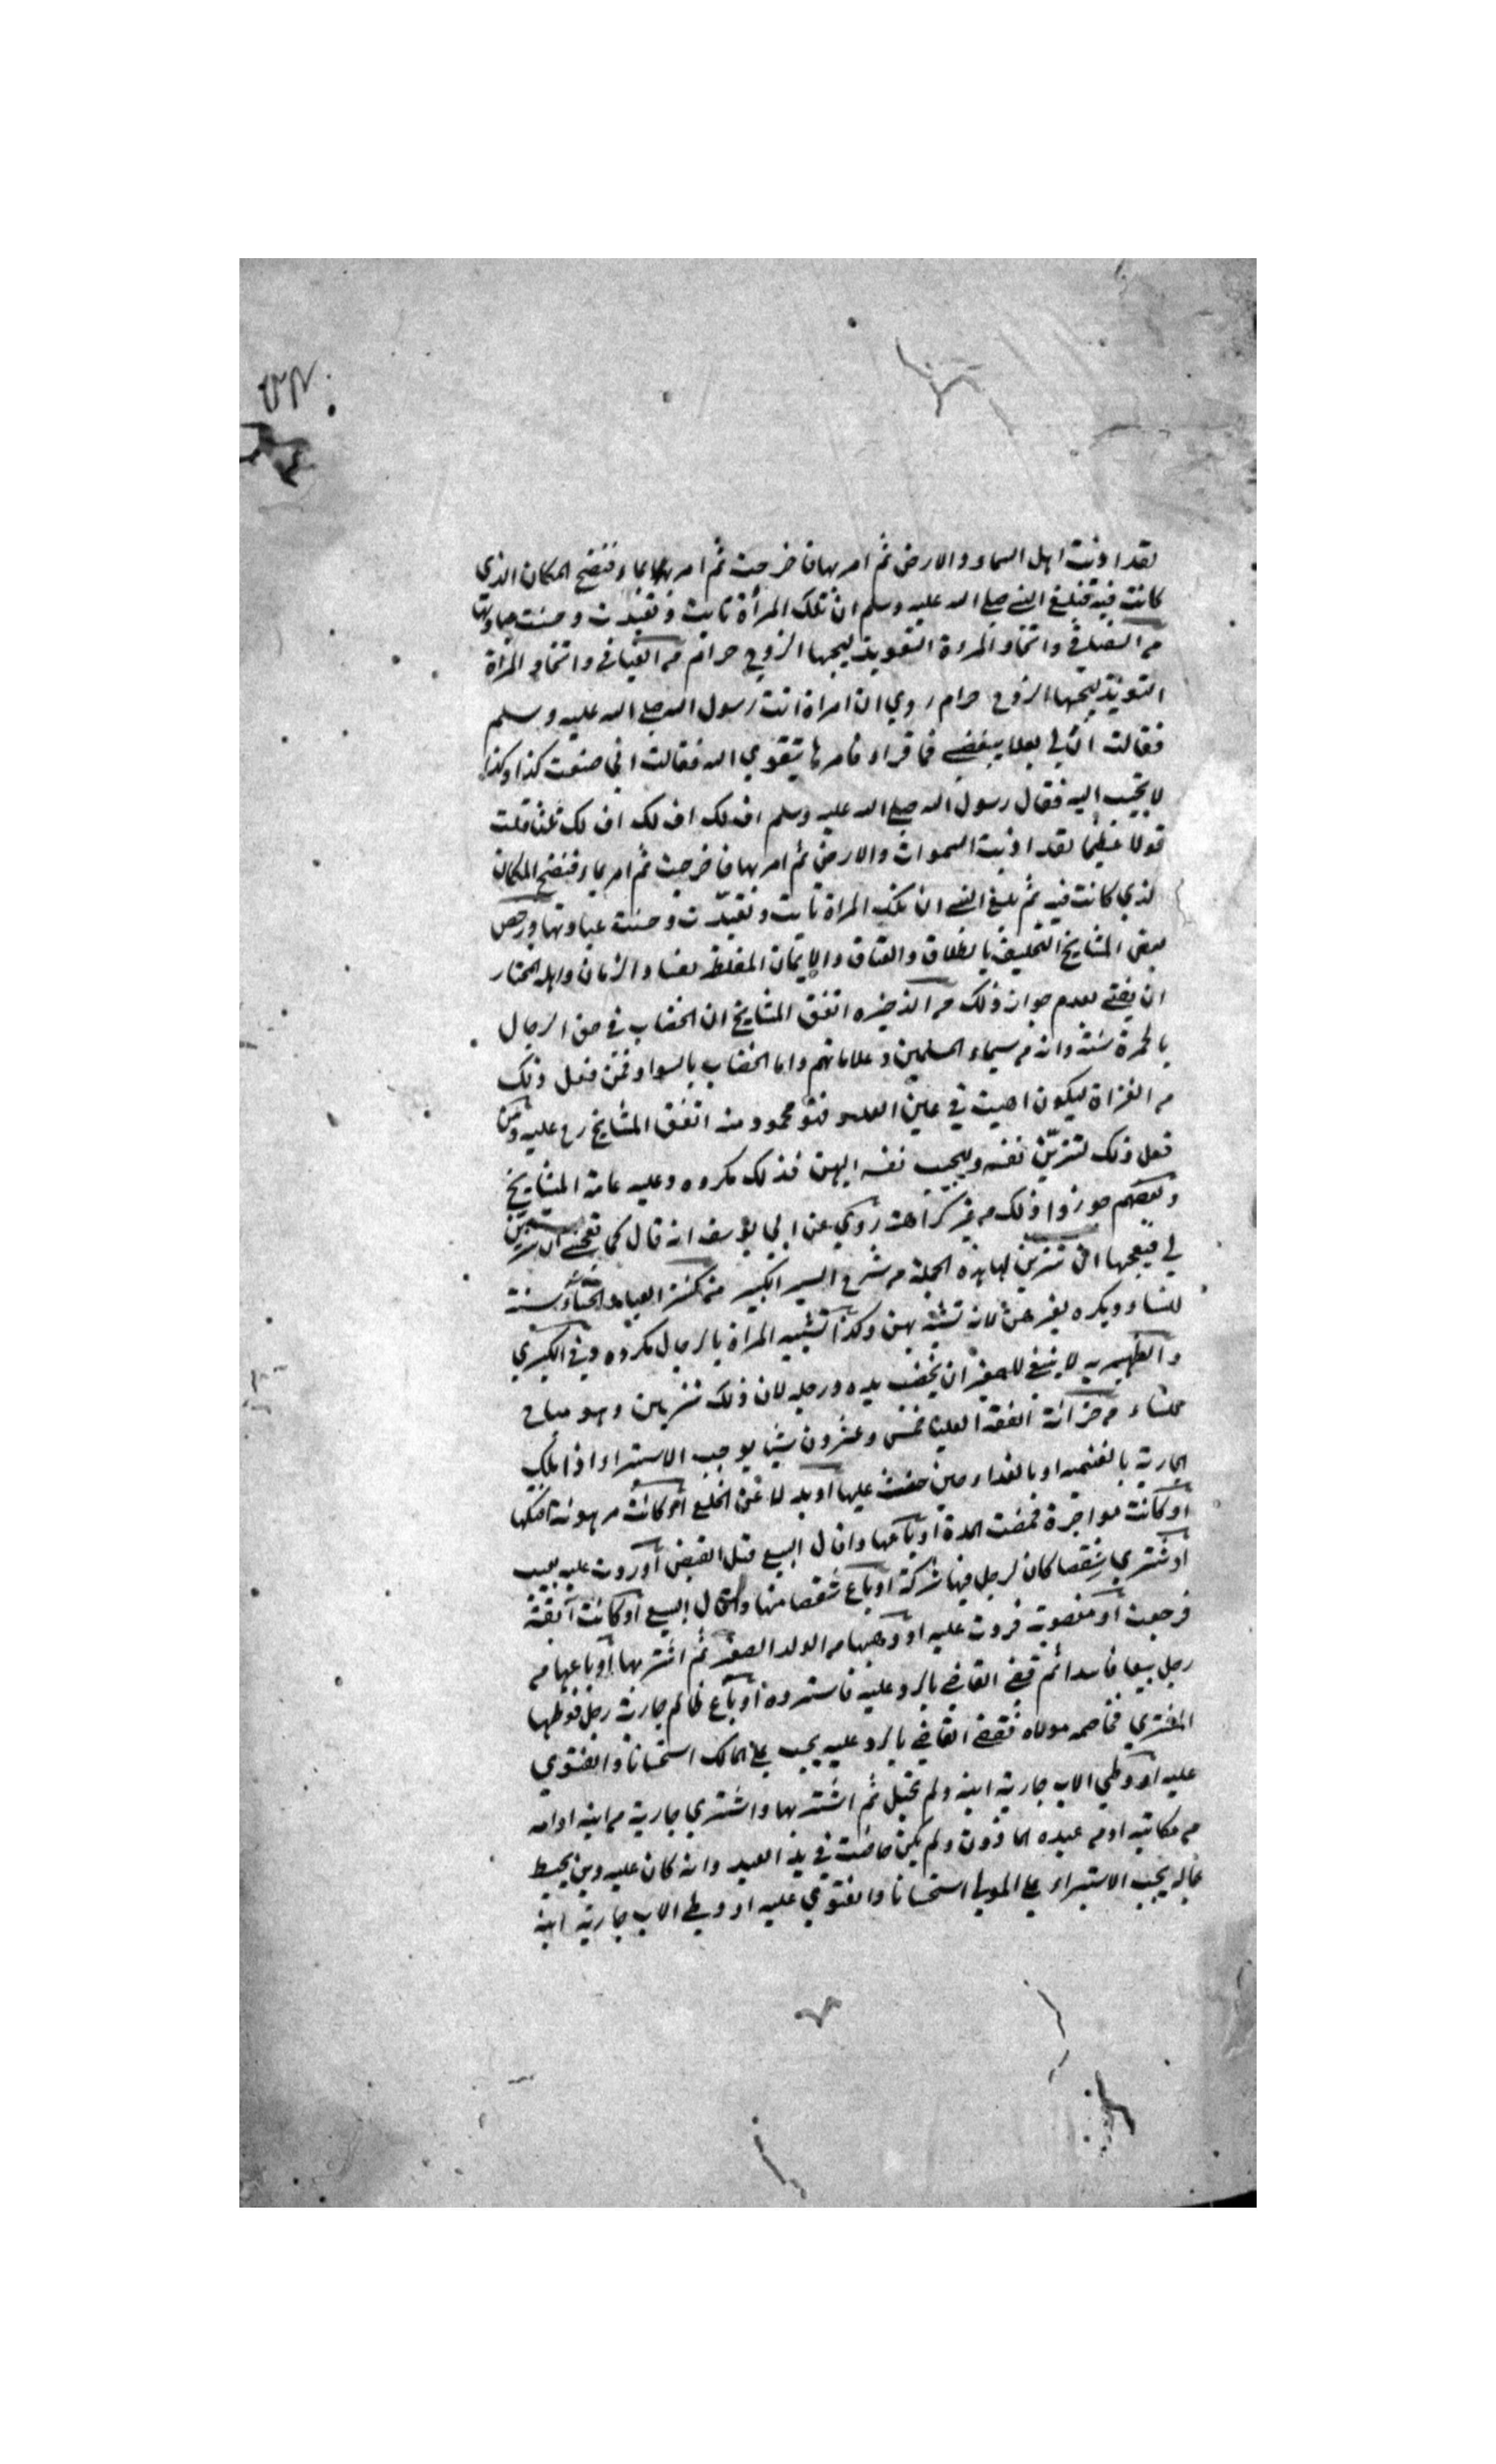 لقد اذنت اهل السماء والارض ثم امر بها فاخرجت ثم امر بماء فنضح المكان الذي
كانت فيه فبلغ النبي صلى الله عليه وسلم ان تلك المرأة تابت وتعبدت وحسنت عبادتها
واتخاذ المرءة التعويذ ليحبها الزوج حرام واتخاذ المرأة
التعويذ ليحبها الزوج حرام روي ان امراة اتت رسول الله صلى الله عليه وسلم
فقالت ان لي بعلا يبغضني فامرها بتقوي الله فقالت اني صنعت كذا وكذا
اليه فقال رسول الله صلى الله عليه وسلم اف لك اف لك اف لك قلت
قولا عظيما لقد اذنبت السموات والارض ثم امر بها فاخرجت ثم امر بماء فنضح المكان
لذي كانت فيه ثم بلغ النبي ان تلك المراة تابت وتعبدت وحسنت عبادتها ورخص
بعض المشايخ التحليف بالطلاق والعتاق والايمان المغلظ لفساد الزمان واهله المختار
ان يفتي بعدم جواز ذلك من الذخيره اتفق المشايخ ان الخضاب في حق الرجال
بالحمرة سنة وانه من سيماء المسلمين وعلاماتهم واما الخضاب بالسواد فمن فعل ذلك
من الغزاة ليكون اهيب في عين العدو فهو محمود منه اتفق المشايخ رح عليه ومن
فعل ذلك لتزين نفسه وليحبب نفسه اليهن فذلك مكروه وعليه عامة المشايخ
وبعضهم جوزوا ذلك من غير كراهت روي عن ابي يوسف انه قال كما تعجبني ان تتزين
لي فيعجبها ان تتزين لها هذه الجملة من شرح السير الكبير من كنز العباد الحناء سنة
للنساء ويكره لغيرهن لانه تشبه بهن وكذا تشبيه المراة بالرجال مكروه وفي الكبري
والظهيريه لا ينبغي للصغير ان يخضب يده ورجله لان ذلك تزين وهو مباح
للنساء من خزانة الفقه العليا خمس وعشرون شيا يوجب الاستبراء اذا ملك
الجارية بالغنيمه او بالفداء حين او بدلا عن الخلع او كانت مرهونة افتكها
او كانت مواجرة فمضت المدة او باعها واقال البيع قبل القبض او ردت عليه بعيب
او شتري شقصا كان لرجل فيها شركة او باع شقصا منها واقال البيع او كانت آبقة
فرجعت او مغصوبة فردت عليه او وهبها من الولد الصغير ثم اشتر بها او باعها من
رجل بيعا فاسدا ثم قضي القاضي بالرد عليه فاسترده او باع ظالم جارية رجل فوطيها
المشتري فخاصمه مولاه فقضي القاضي بالرد عليه يجب علي المالك استحسانا والفتوي
عليه او وطي الاب جارية ابنه ولم تحبل ثم اشتر بها واشتري جارية من ابنه او امه
من مكاتبه او من عبده الماذون ولم يكن حاضت في يد العبد وان كان عليه دين يحيط
بماله يجب الاستبراء علي المولي استحسانا والفتوي عليه او وطي الاب جارية ابنه